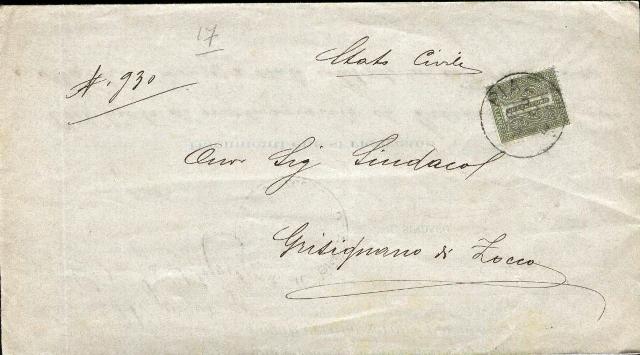 17
Stato Civile
N. 930
Onor Sig Sindaco
Grisignano di Zocco